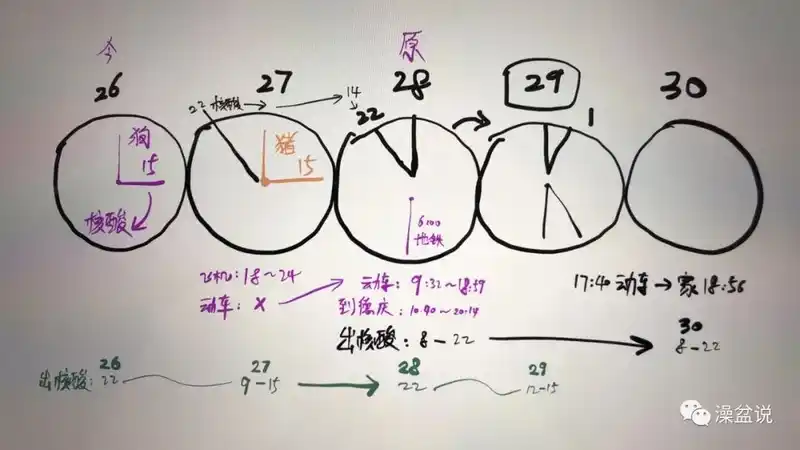 今
原
26
27
28
29
30
22 核酸
14
22
1
狗
15
核酸
猪
15
6:00
地铁
飞机:18~24
动车:9:32~18:59
17:40 动车→家 18:56
动车:x
到德庆:10:40~20:14
出核酸:8-22
30
8-22
26
27
28
29
出核酸:22
9-15
22
12-15
澡盆说